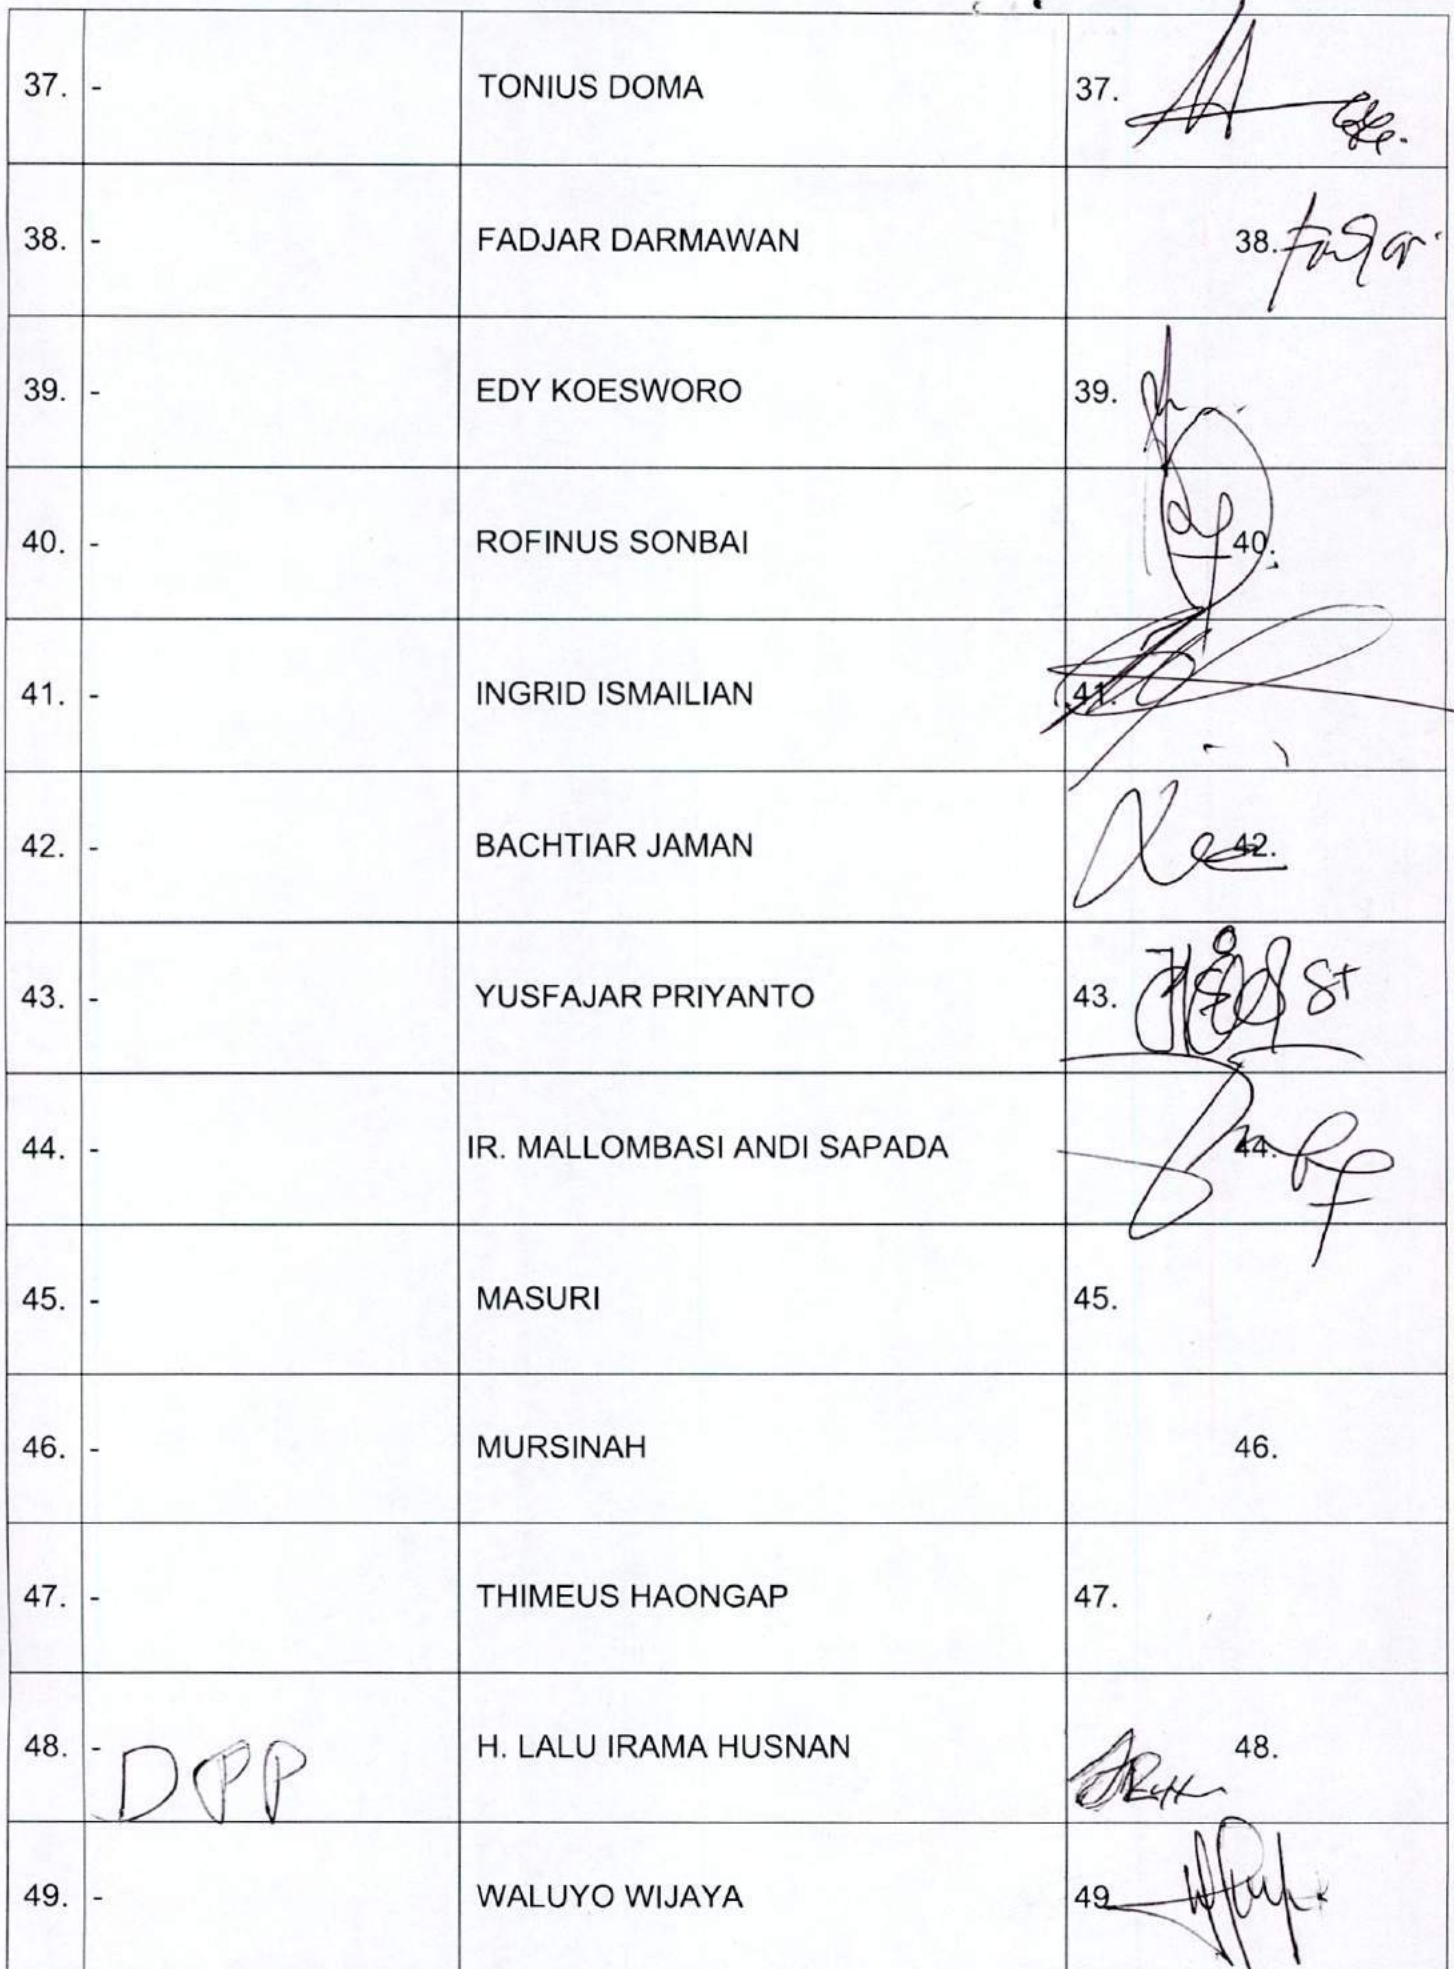 37. - TONIUS DOMA 37.
38. - FADJAR DARMAWAN 38. Fadjar
39. - EDY KOESWORO 39.
40. - ROFINUS SONBAI 40.
41. - INGRID ISMAILIAN 41.
42. - BACHTIAR JAMAN 42.
43. - YUSFAJAR PRIYANTO 43.
44. - IR. MALLOMBASI ANDI SAPADA 44.
45. - MASURI 45.
46. - MURSINAH 46.
47. - THIMEUS HAONGAP 47.
48. - DPP H. LALU IRAMA HUSNAN 48.
49. - WALUYO WIJAYA 49